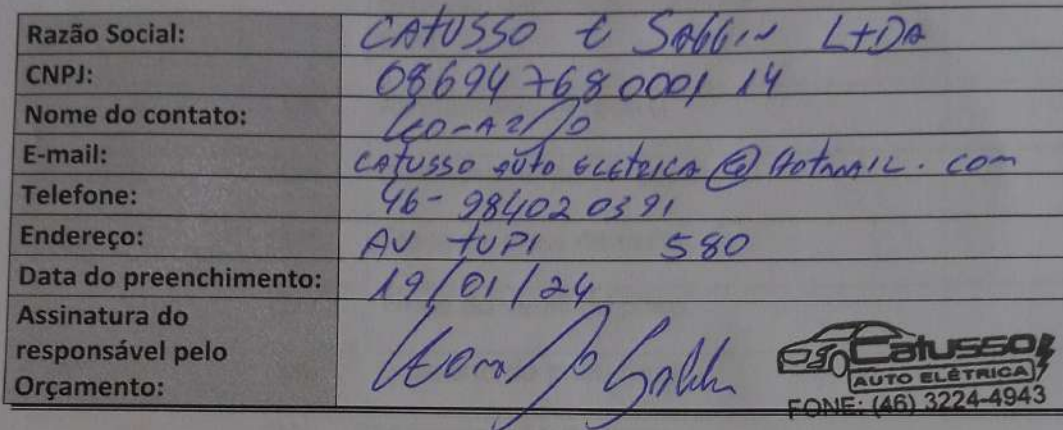 Razão Social: CATUSSO & SAGGIN LTDA
CNPJ: 08694768 0001 14
Nome do contato:
E-mail: CATUSSO AUTO ELETRICA @ HOTMAIL. COM
Telefone: 46- 984020391
Endereço: AV TUPI 580
Data do preenchimento: 19/01/24
Assinatura do
responsável pelo
Orçamento:
Catusso
AUTO ELÉTRICA
FONE: (46) 3224-4943